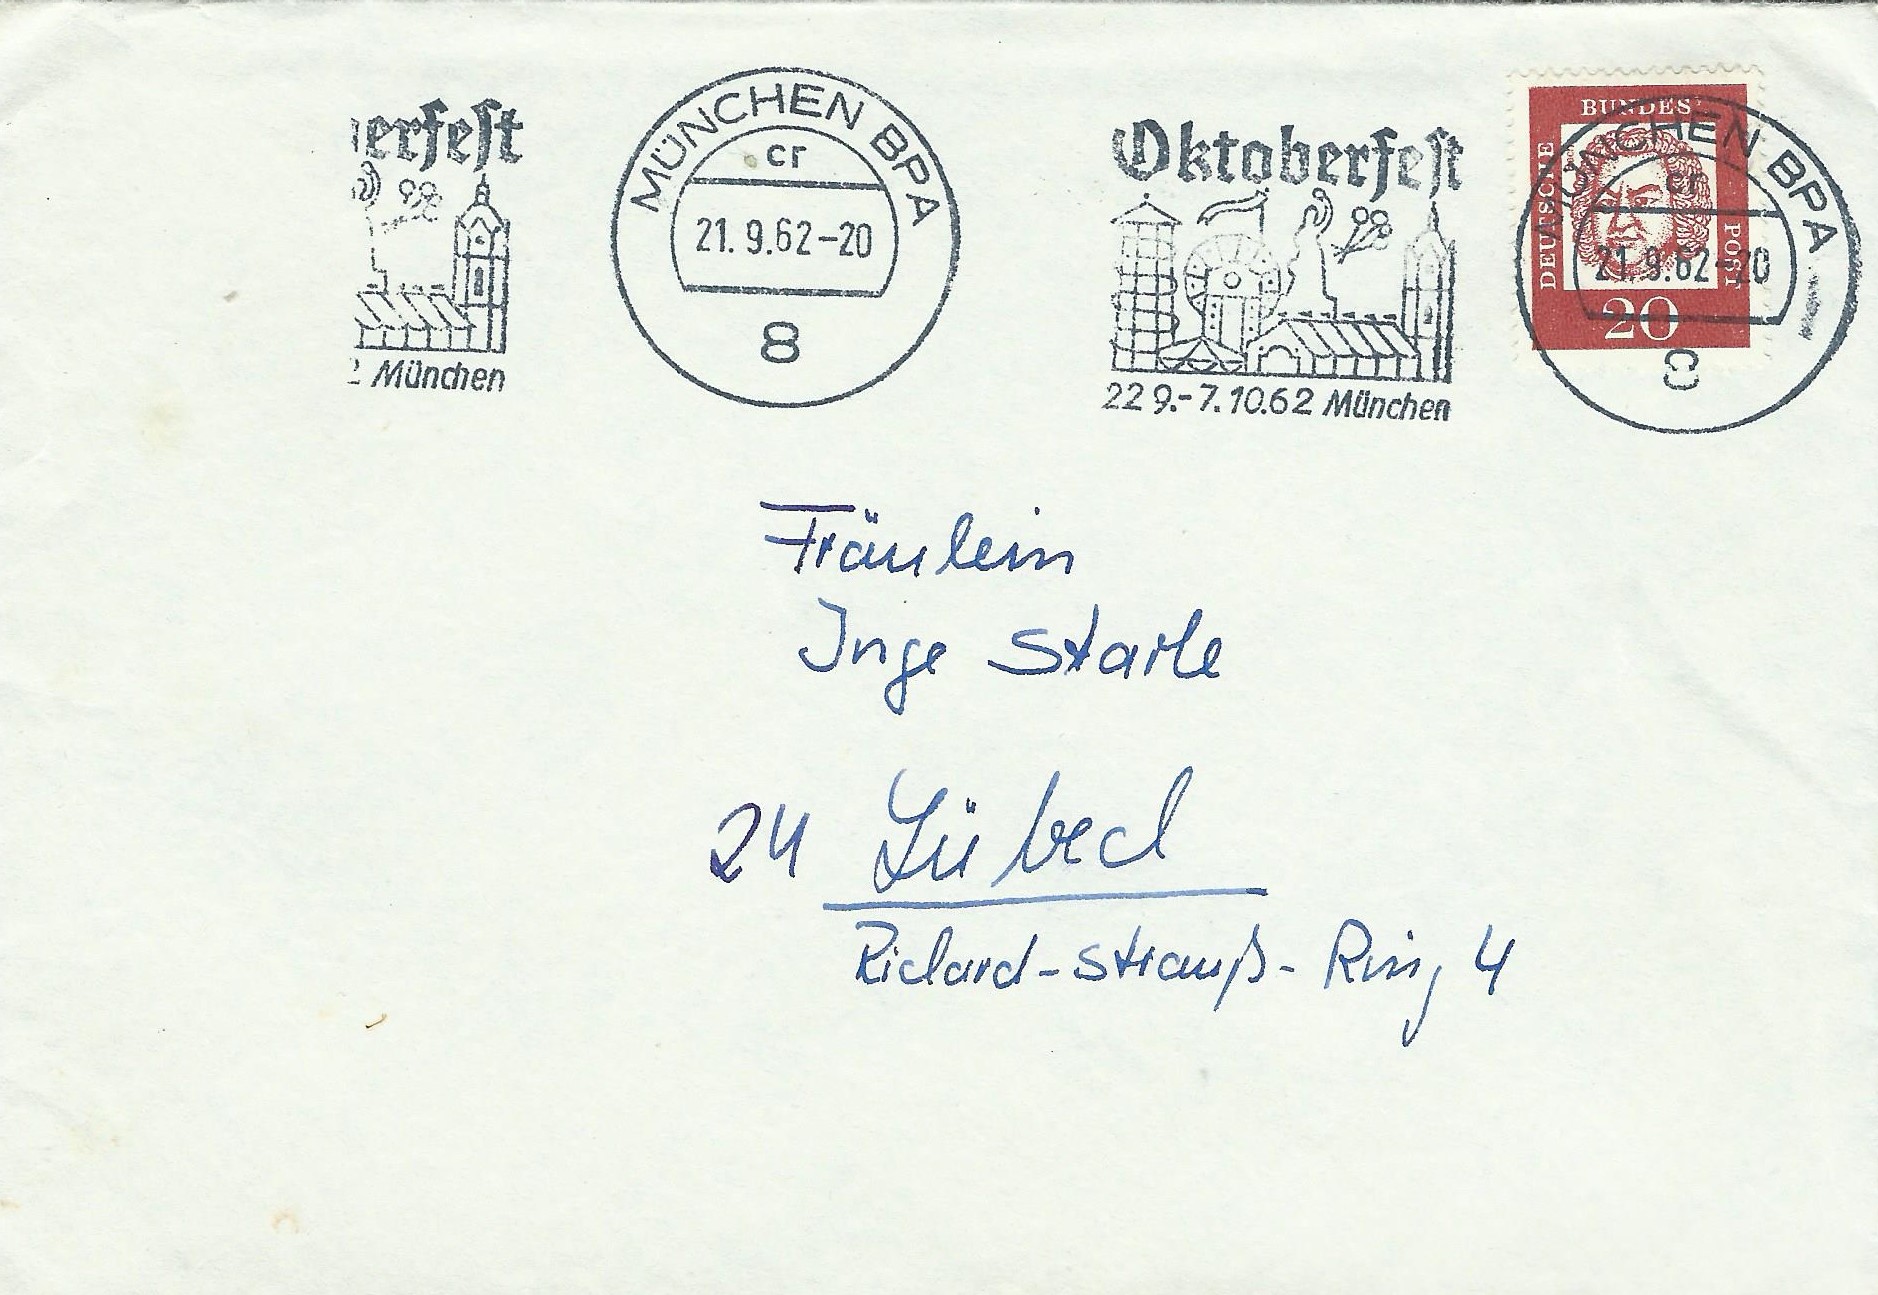 erfest
2 München
MÜNCHEN BPA
cr
21. 9.62-20
8
Oktoberfest
22 9.-7.10.62 München
DEUTSCHE
BUNDES
POST
20
MÜNCHEN BPA
cr
21.9.62-20
8
Fräulein
Inge Starke
24 Lübeck
Richard-Strauß-Ring 4